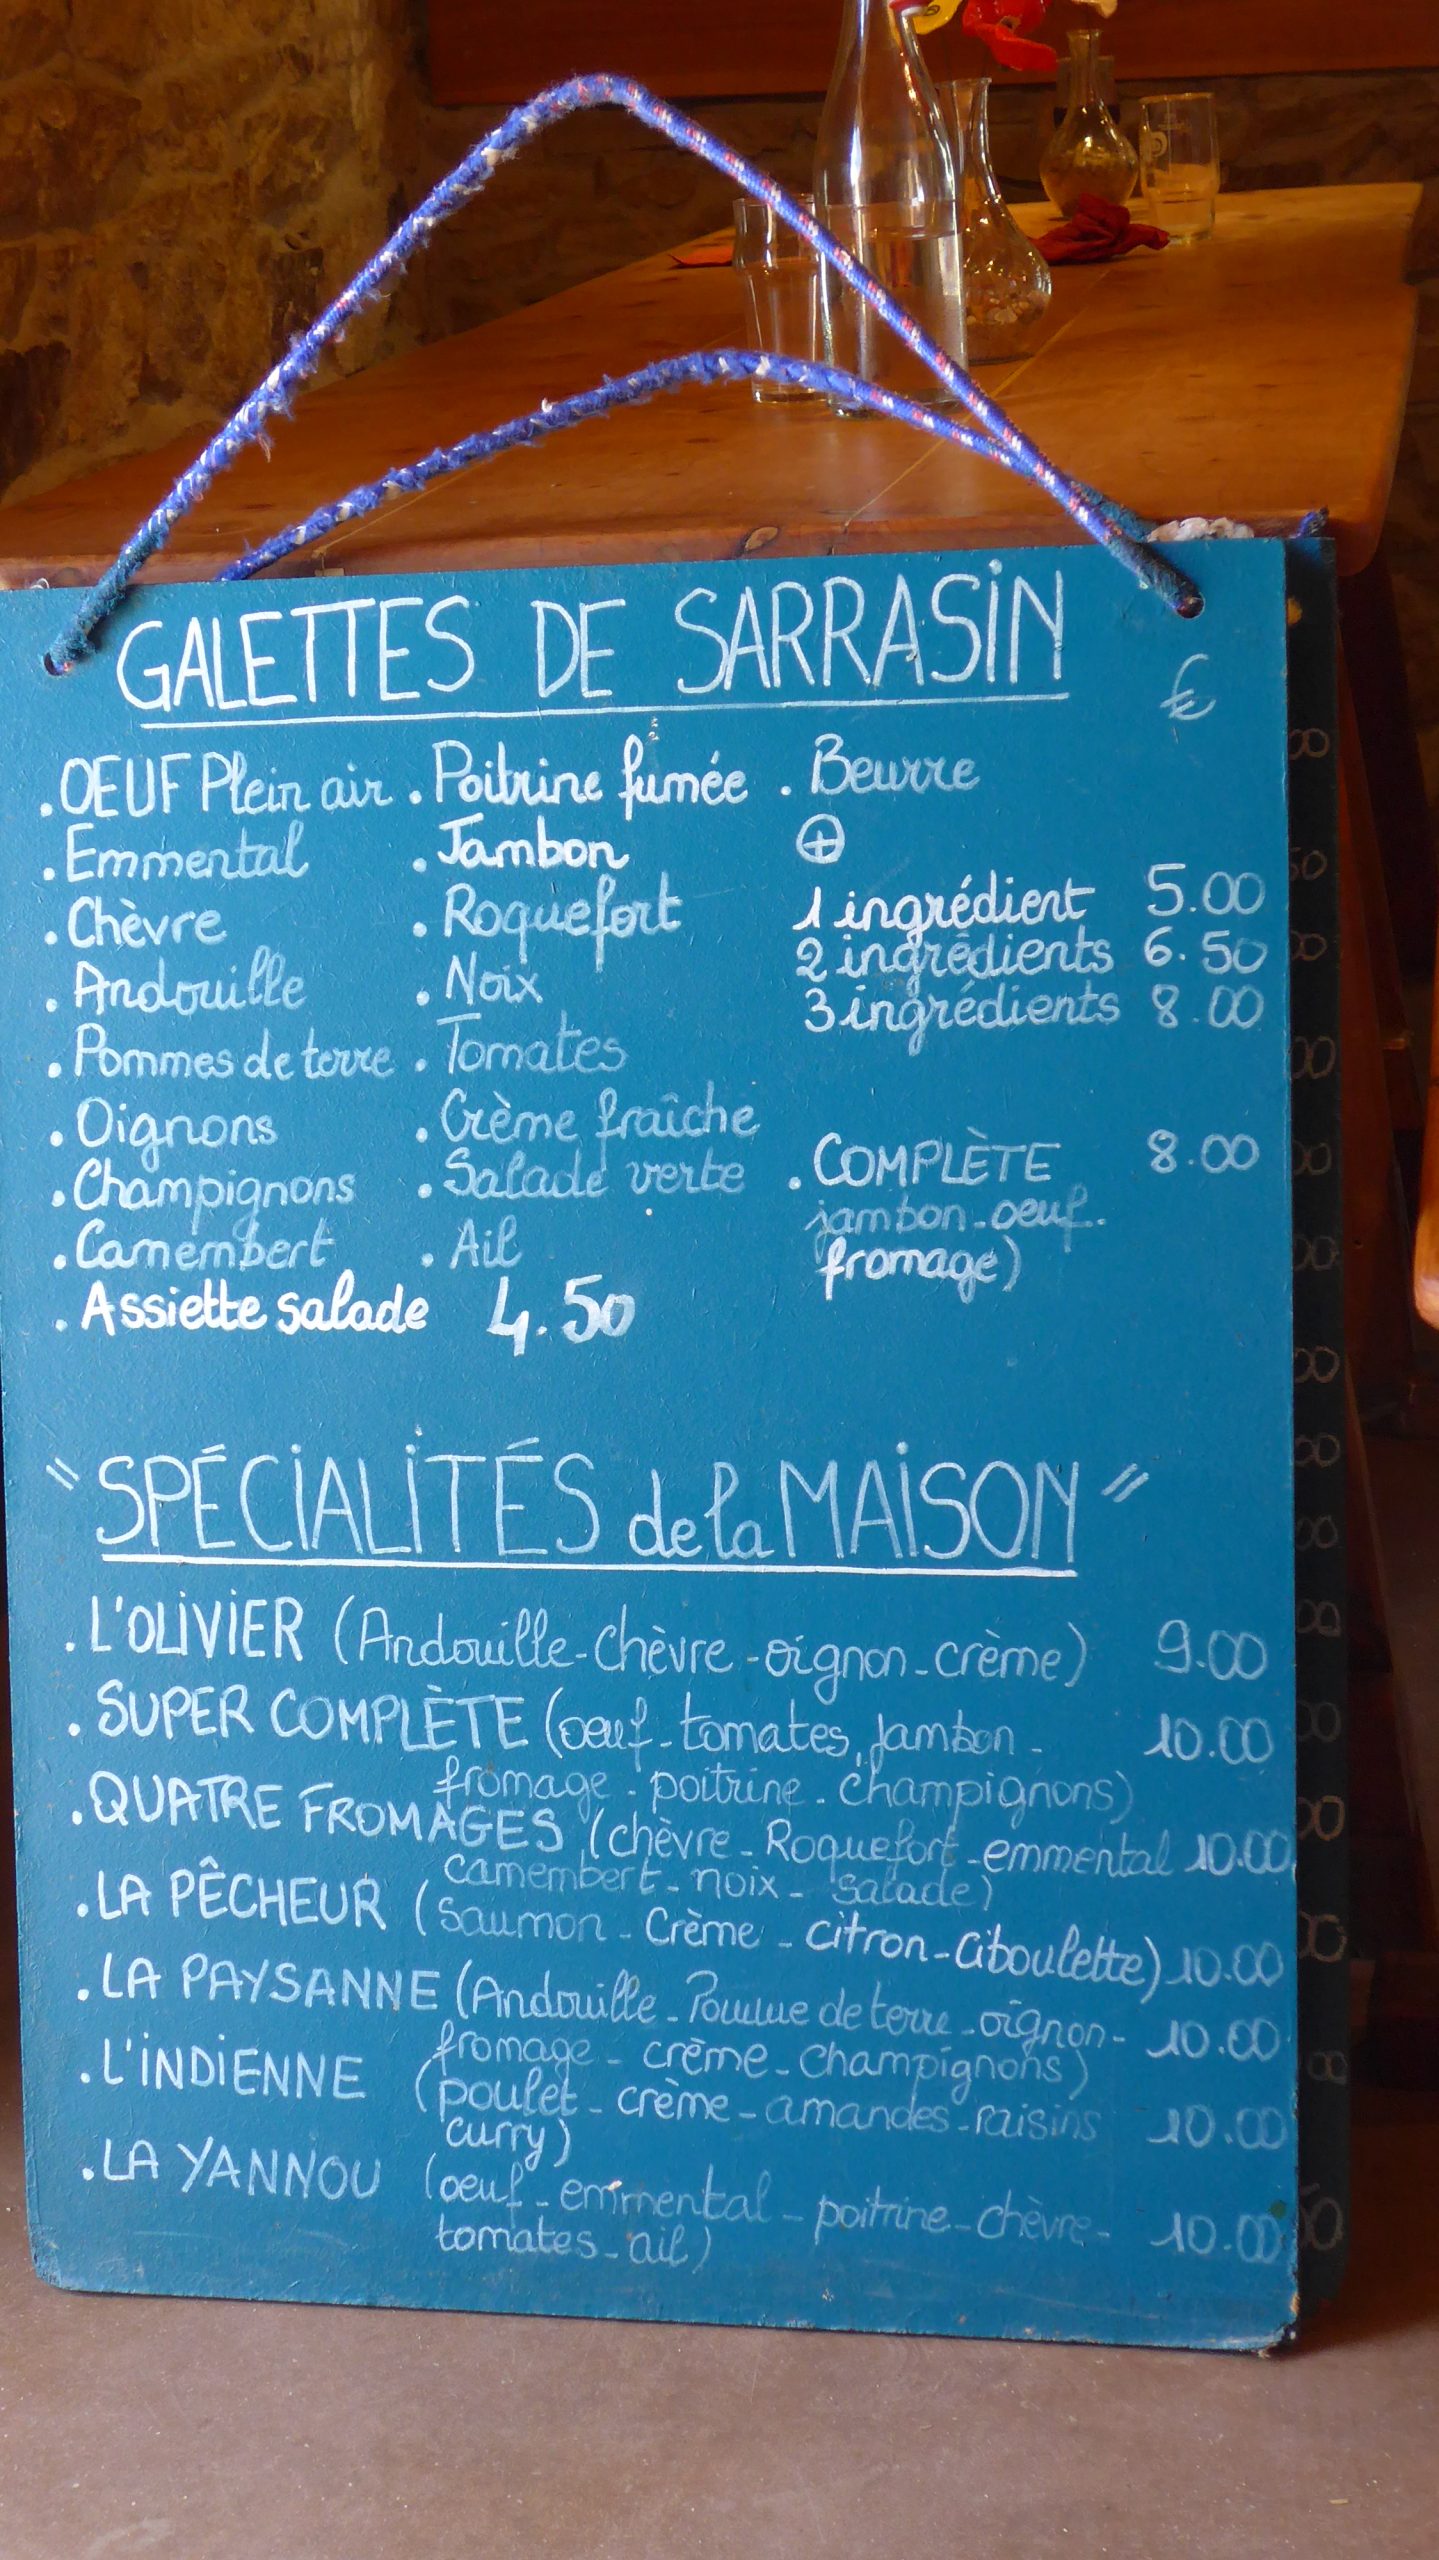 GALETTES DE SARRASIN
€
. OEUF Plein air . Poitrine fumée . Beurre
. Emmental . Jambon ⊕
. Chèvre . Roquefort 1 ingrédient 5.00
. Andouille . Noix 2 ingrédients 6.50
. Pommes de terre . Tomates 3 ingrédients 8.00
. Oignons . Crème fraîche
. Champignons . Salade verte . COMPLÈTE 8.00
. Camembert . Ail jambon - oeuf -
. Assiette salade 4.50 fromage)
" SPÉCIALITÉS de la MAISON "
. L'OLIVIER (Andouille - chèvre - oignon - crème) 9.00
. SUPER COMPLÈTE (oeuf - tomates, jambon - 10.00
fromage - poitrine - champignons)
. QUATRE FROMAGES (chèvre - Roquefort - emmental 10.00
camembert - noix - salade)
. LA PÊCHEUR (Saumon - Crème - citron - ciboulette) 10.00
. LA PAYSANNE (Andouille - Pomme de terre - oignon - 10.00
fromage - crème - champignons)
. L'INDIENNE (poulet - crème - amandes - raisins 10.00
curry)
. LA YANNOU (oeuf - emmental - poitrine - chèvre - 10.00
tomates - ail)